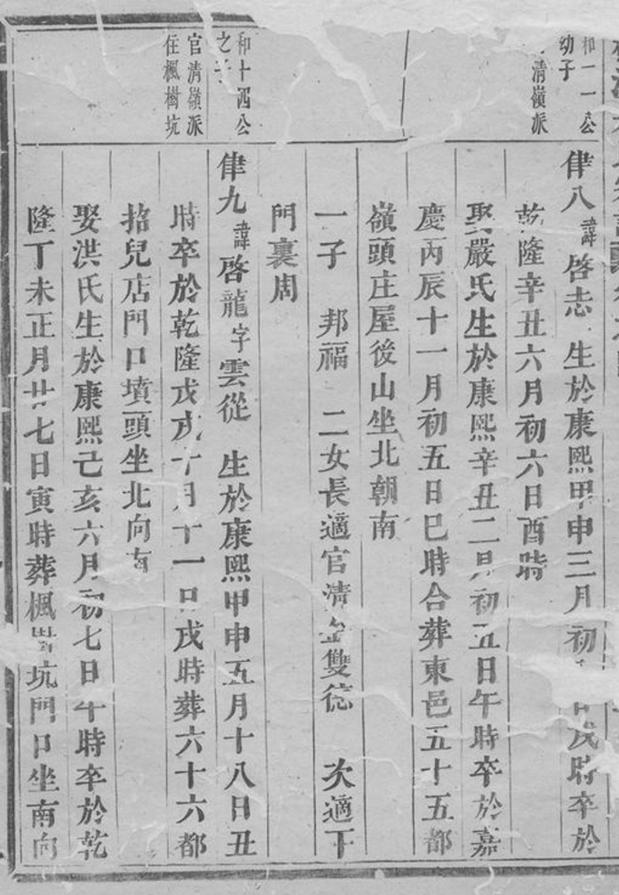 和一一公
幼子
清嶺派
律八諱啓志 生於康熙甲申三月初 日戌時卒於
乾隆辛丑六月初六日酉時
娶嚴氏生於康熙辛丑二月初五日午時卒於嘉
慶丙辰十一月初五日巳時合葬東邑五十五都
嶺頭庄屋後山坐北朝南
一子 邦福 二女長適官清金雙德 次適下
門裏周
和十四公
之子
官清嶺派
住楓樹坑
律九諱啓龍字雲從 生於康熙甲申五月十八日丑
時卒於乾隆戊戌十月十一日戌時葬六十六都
招兒店門口墳頭坐北向南
娶洪氏生於康熙己亥六月初七日午時卒於乾
隆丁未正月廿七日寅時葬楓樹坑門口坐南向